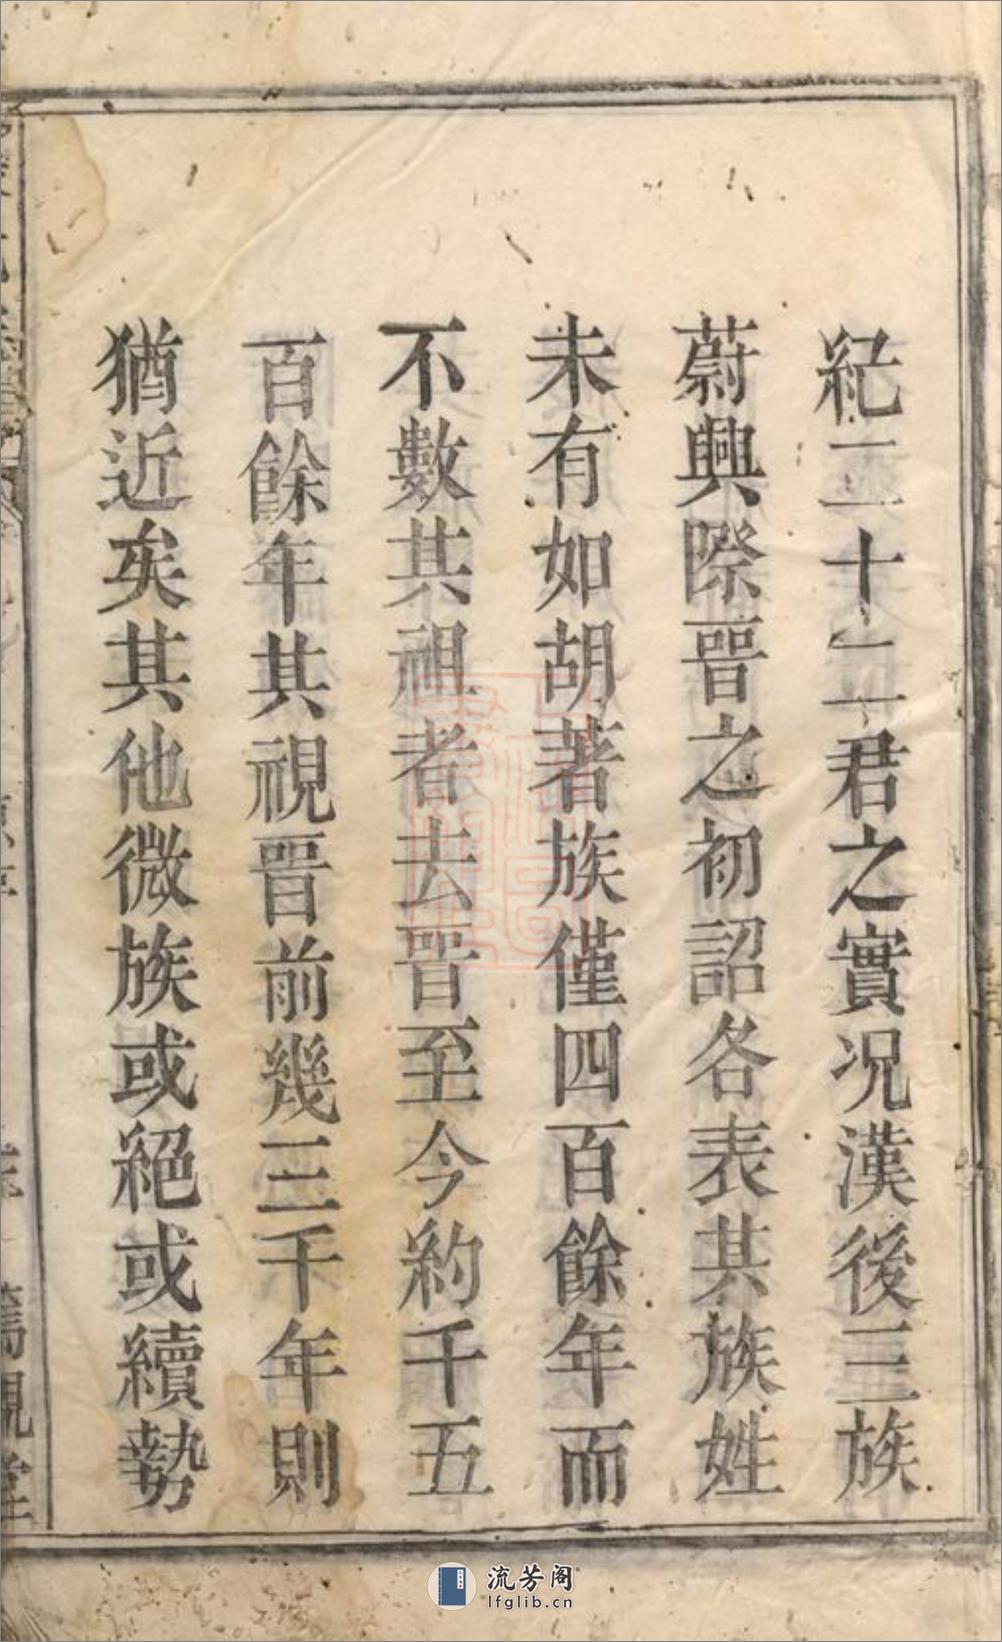 紀二十一君之實況漢後三族
蔚興際晉之初詔各表其族姓
未有如胡著族僅四百餘年而
不數其祖者去晉至今約千五
百餘年其視晉前幾三千年則
猶近矣其他微族或絕或續勢
流芳阁
lfglib.cn